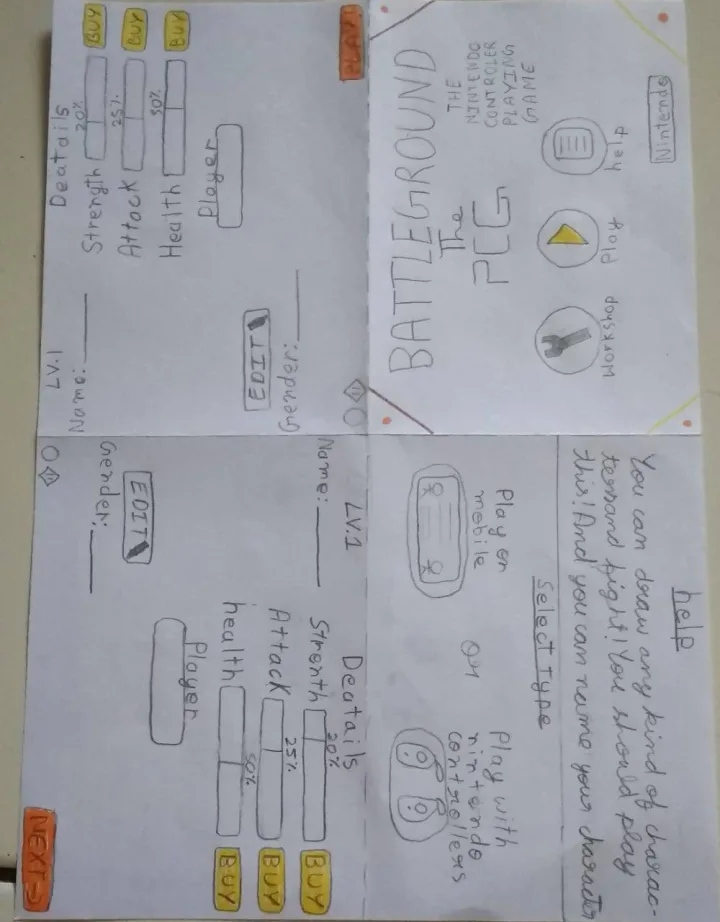 BATTLEGROUND
The
PCG
THE
NINTENDO
CONTROLER
PLAYING
GAME
Workshop
Play
help
Nintendo
help
You can draw any kind of charac-
tersand fight! You should play
this! And you can name your character
Select Type
Play on
mobile
or
Play with
nintendo
controllers
LV.1
Name:
Deatails
Strength
20%
BUY
Attack
25%
BUY
Health
50%
BUY
Player
EDIT
Gender:
PLAY!
LV.1
Name:
Deatails
Strenth
20%
BUY
Attack
25%
BUY
health
50%
BUY
Player
EDIT
Gender:
NEXT→